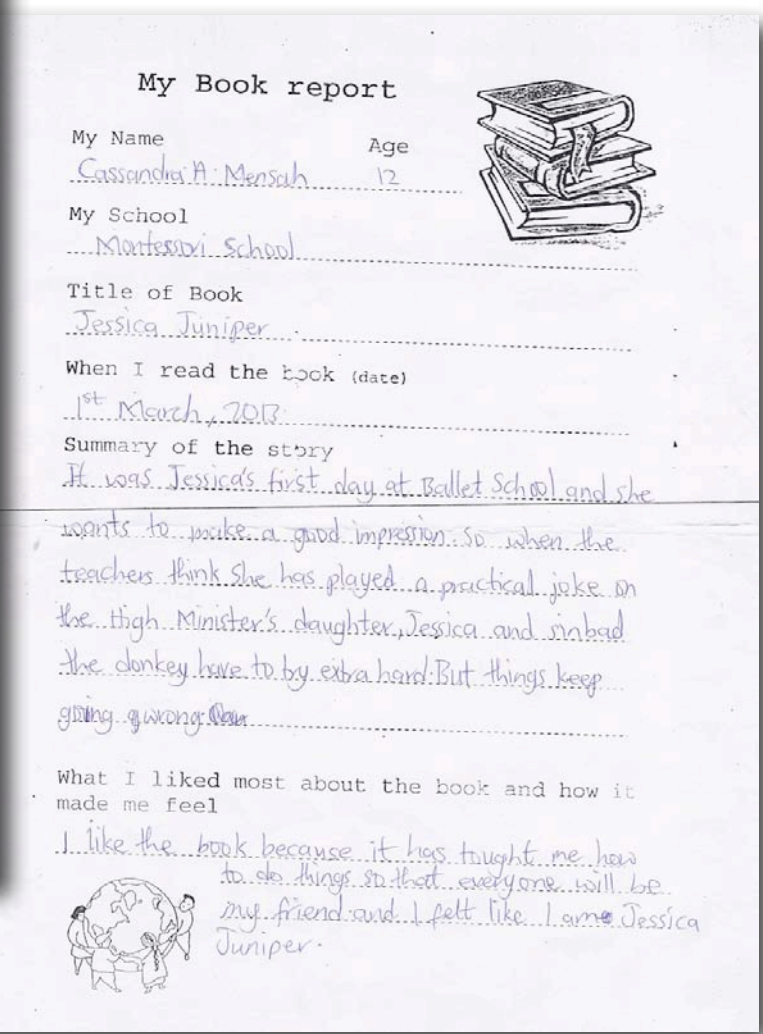 My Book report
My Name Age
Cassandra A. Mensah 12
My School
Montessori School
Title of Book
Jessica Juniper
When I read the book (date)
1st March, 2013
Summary of the story
It was Jessica's first day at Ballet School and she
wants to make a good impression. So when the
teachers think She has played a practical joke on
the High Minister's daughter, Jessica and sinbad
the donkey have to by extra hard. But things keep
going wrong.
What I liked most about the book and how it
made me feel
I like the book because it has tought me how
to do things so that everyone will be
my friend and I felt like I am Jessica
Juniper.